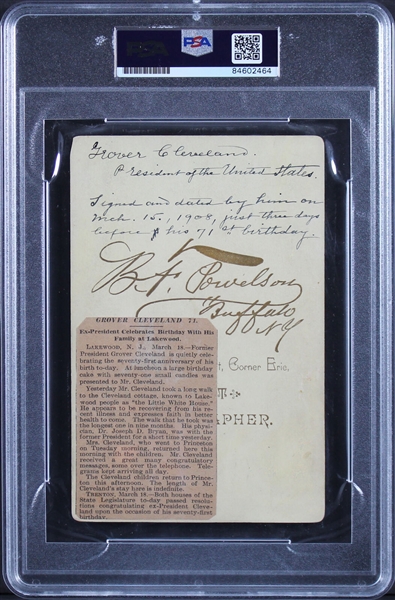 PSA
PSA
PSA
84602464
Grover Cleveland.
President of the United States.
Signed and dated by him on
Mch. 15, 1908, just three days
before his 71st birthday.
B.F. Powelson
Buffalo
N.Y.
GROVER CLEVELAND 71.
Ex-President Celebrates Birthday With His
Family at Lakewood.
LAKEWOOD, N. J., March 18.—Former
President Grover Cleveland is quietly cele-
brating the seventy-first anniversary of his
birth to-day. At luncheon a large birthday
cake with seventy-one small candles was
presented to Mr. Cleveland.
Yesterday Mr. Cleveland took a long walk
to the Cleveland cottage, known to Lake-
wood people as "the Little White House."
He appears to be recovering from his re-
cent illness and expresses faith in better
health to come. The walk that he took was
the longest one in nine months. His physi-
cian, Dr. Joseph D. Bryan, was with the
former President for a short time yesterday.
Mrs. Cleveland, who went to Princeton
on Tuesday morning, returned here this
morning with the children. Mr. Cleveland
received a great many congratulatory
messages, some over the telephone. Tele-
grams kept arriving all day.
The Cleveland children return to Prince-
ton this afternoon. The length of Mr.
Cleveland's stay here is indefinite.
TRENTON, March 18.—Both houses of the
State Legislature to-day passed resolu-
tions congratulating ex-President Cleve-
land upon the occasion of his seventy-first
birthday.
t, Corner Erie.
PHER.